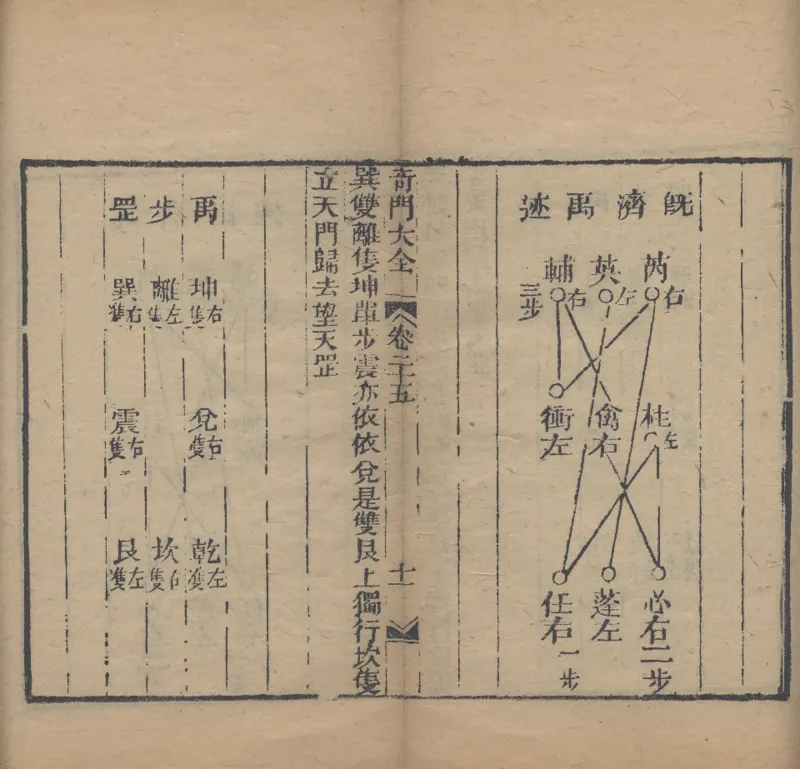 既濟禹迹
芮右
英左
輔右
三步
柱左
禽右
衝左
必右二步
蓬左
任右一步
奇門大全 卷二十五 十一
巽雙離隻坤單步震亦依依兌是雙艮上獨行坎隻
立天門歸去望天罡
禹步罡
坤右隻
離左隻
巽右隻
兌右隻
震右隻
乾左隻
坎右隻
艮左隻